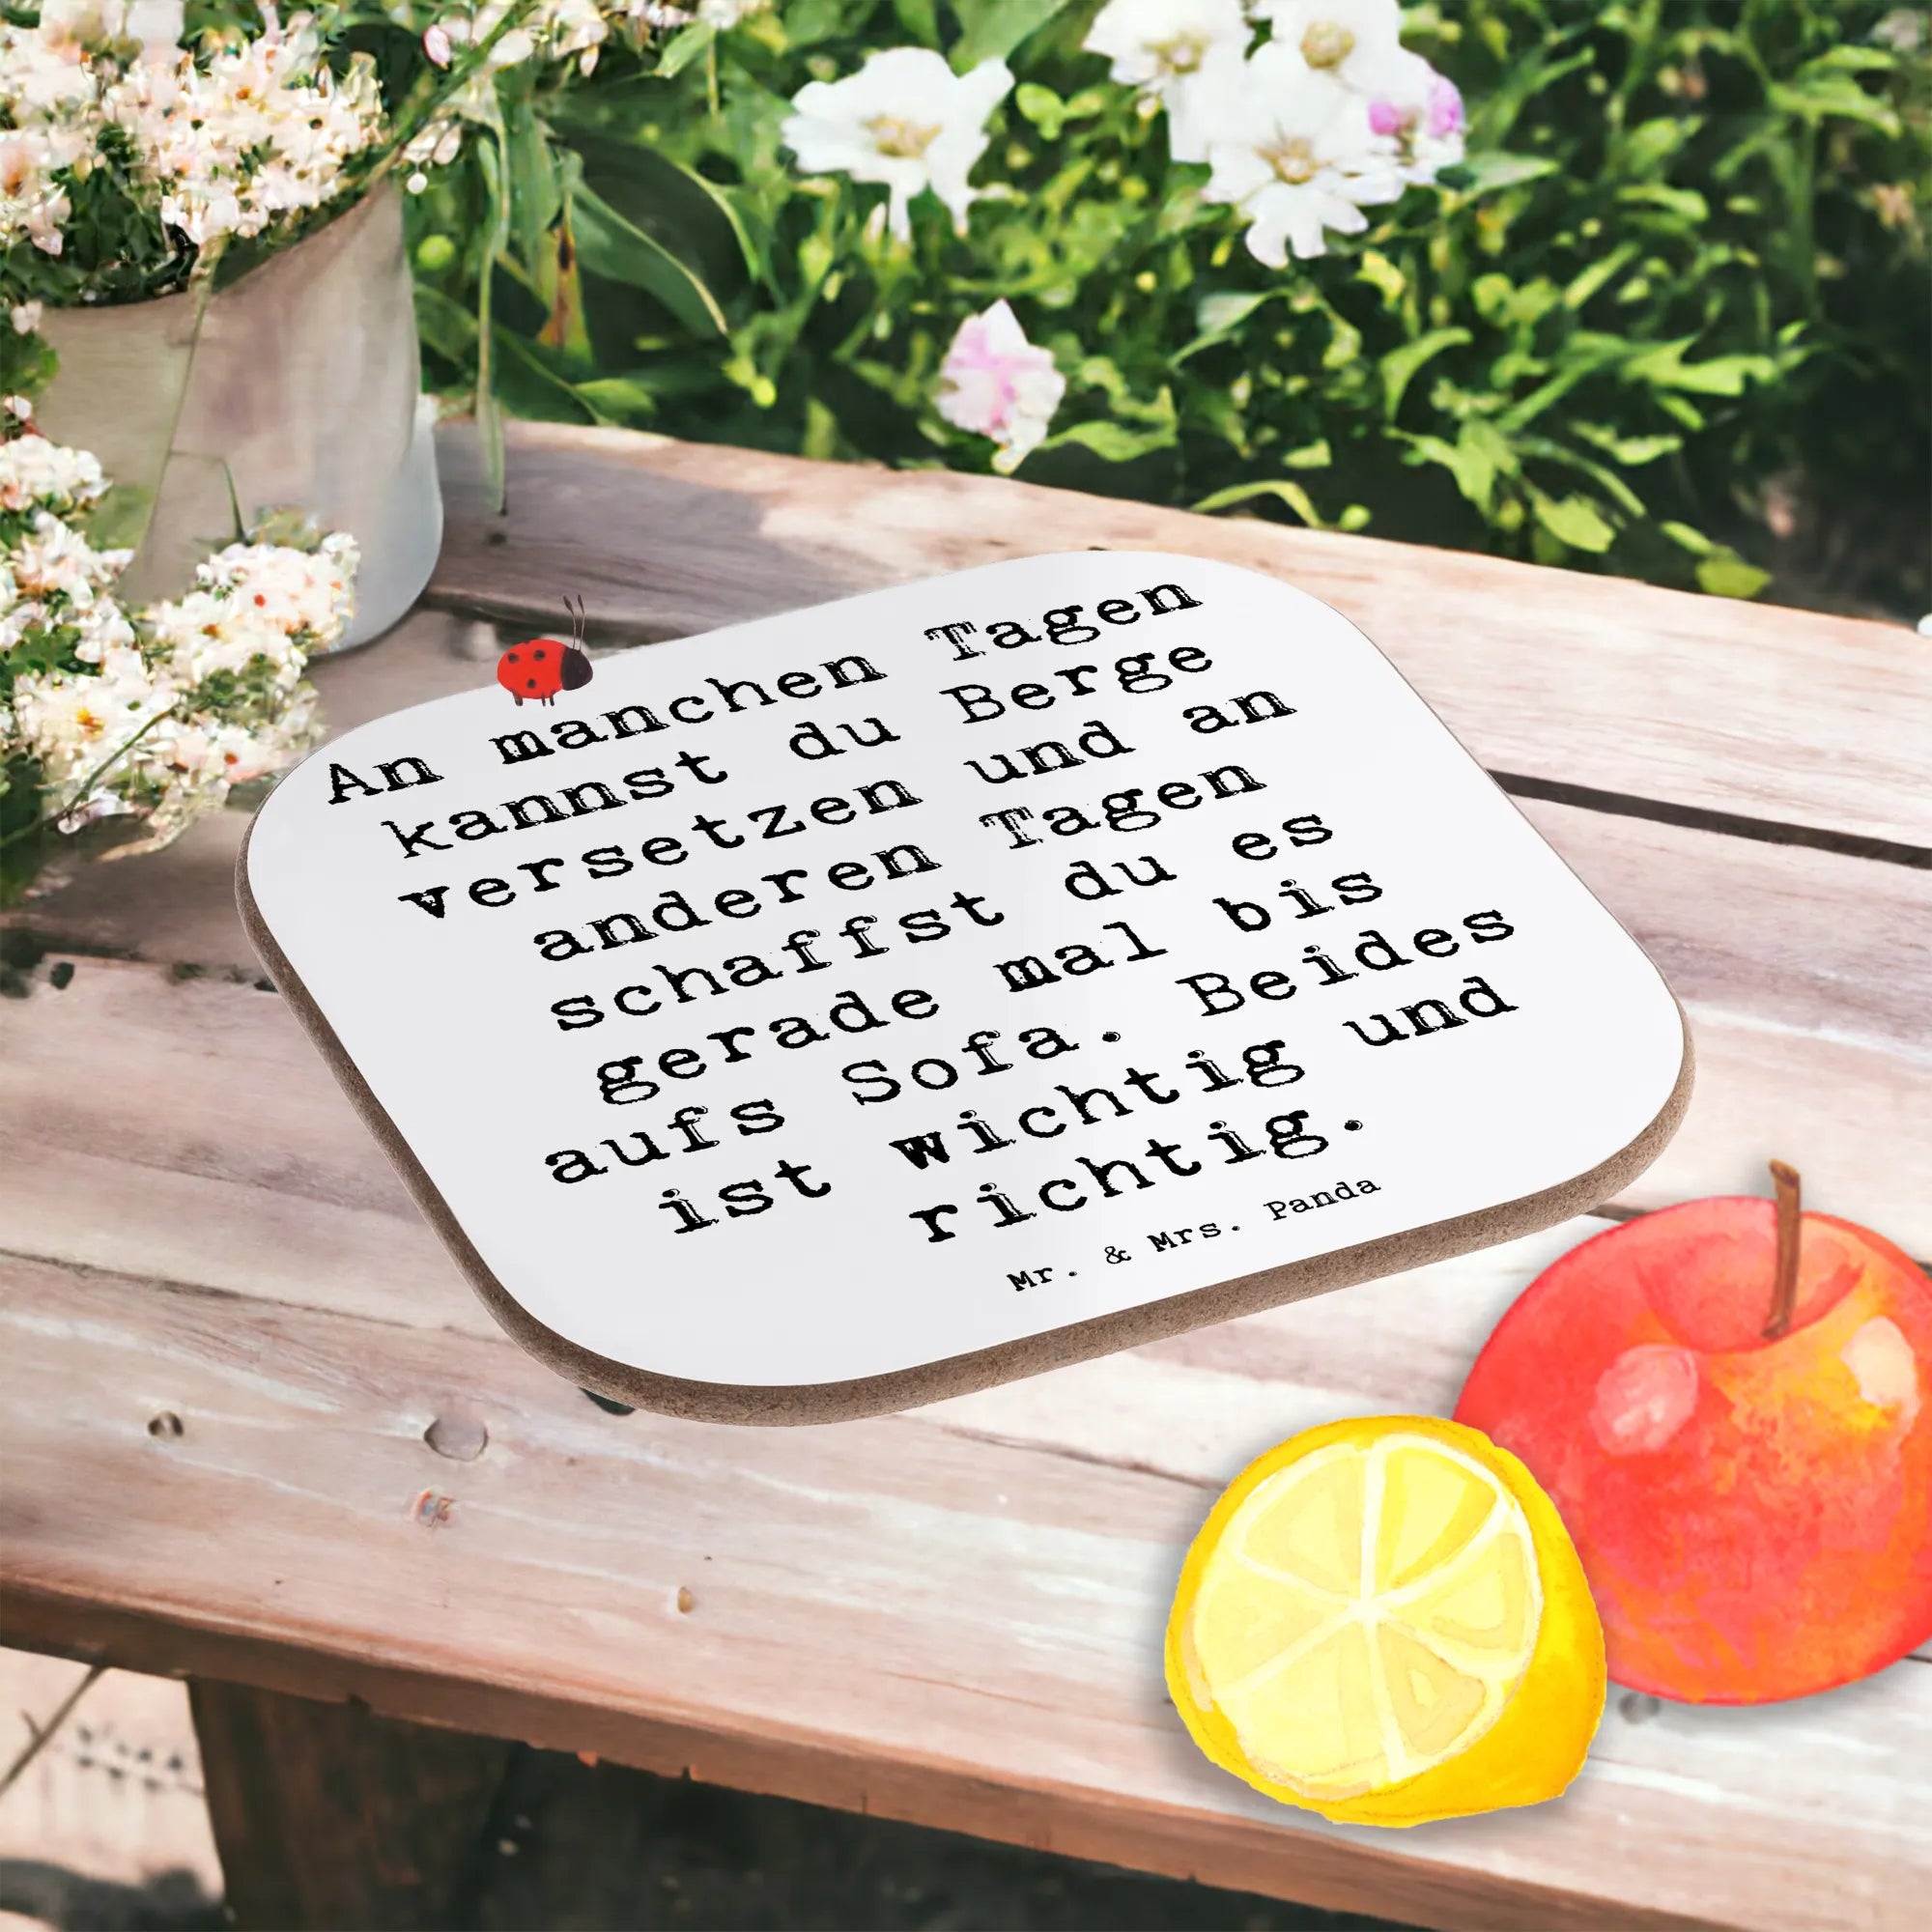 An manchen Tagen
kannst du Berge
versetzen und an
anderen Tagen
schaffst du es
gerade mal bis
aufs Sofa. Beides
ist wichtig und
richtig.
Mr. & Mrs. Panda